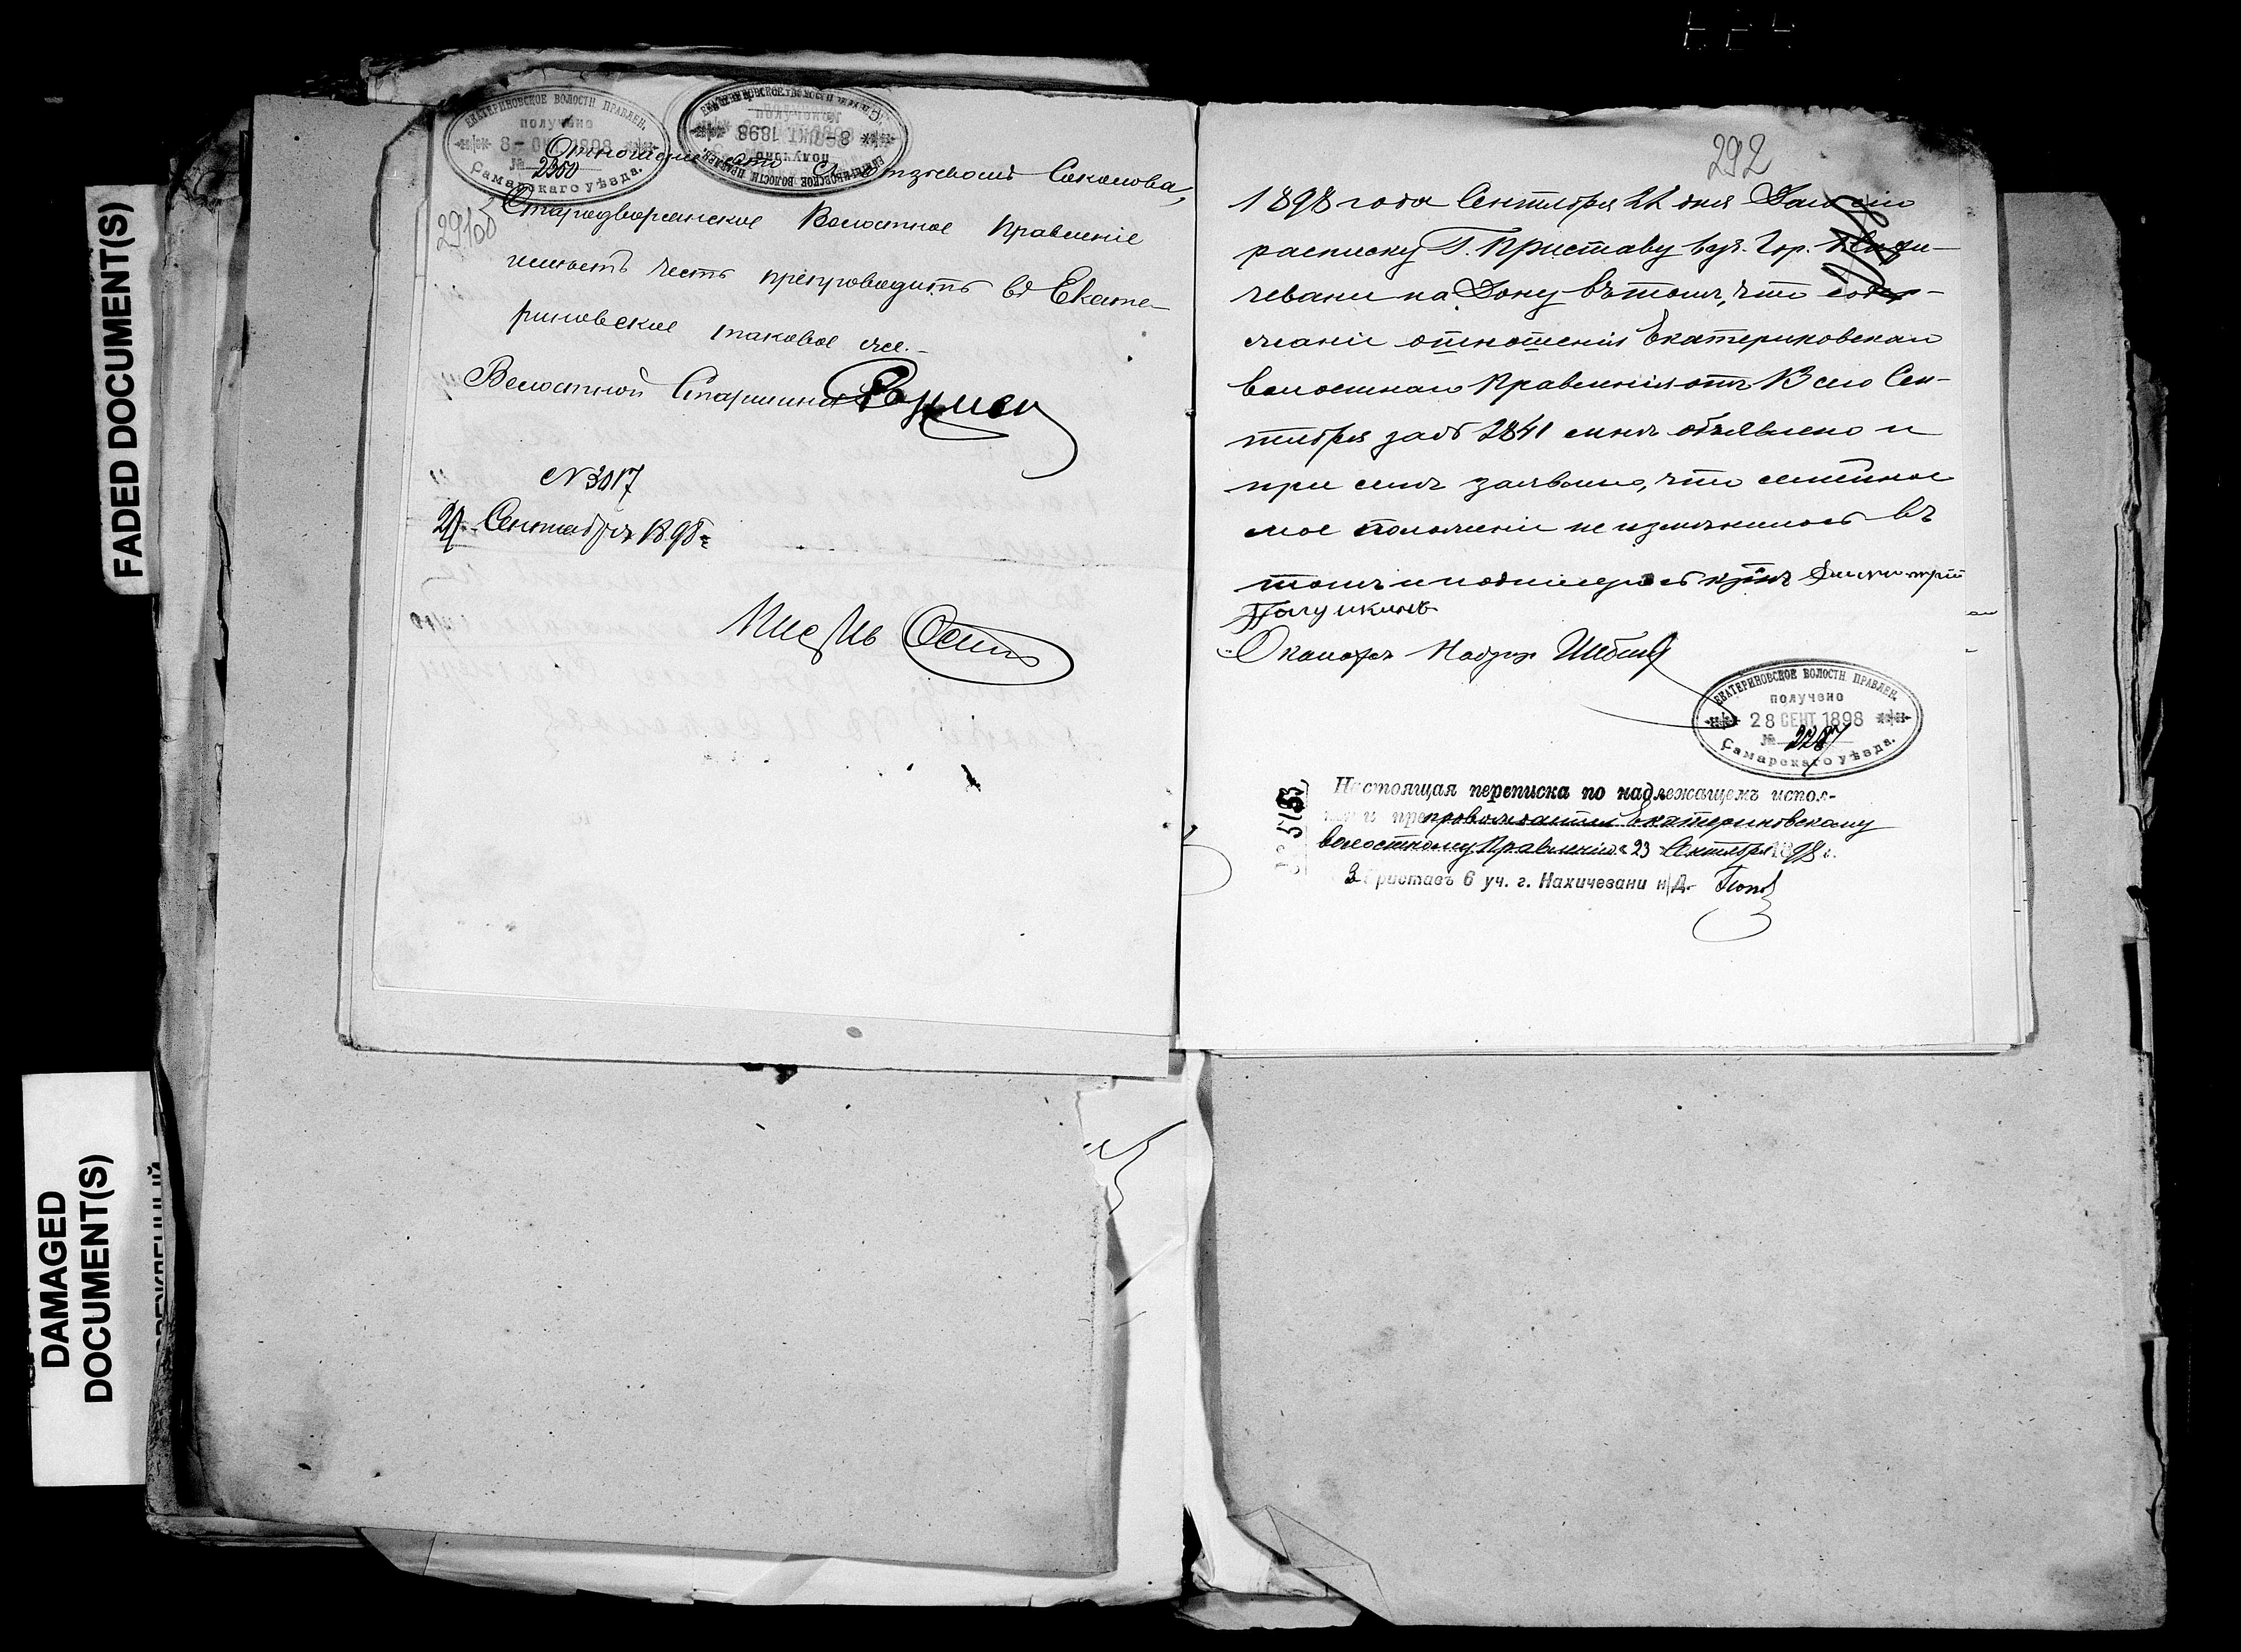 FADED DOCUMENT(S)
DAMAGED
DOCUMENT(S)
ЕКАТЕРИНОВСКОЕ ВОЛОСТН ПРАВЛЕН.
получено
8 - ОКТ 1898
№ 2350
Самарскаго уѣзда.
ЕКАТЕРИНОВСКОЕ ВОЛОСТН ПРАВЛЕН.
получено
8 - ОКТ 1898
Отношение Соколова,
Стародворянское Волостное Правленіе
имѣетъ честь препроводить въ Екате-
риновское таковое же.-
Волостной Старшина
№ 3017
Сентября 1898
292
1898 года Сентября 22 дня Далъ сію
расписку Г. Приставу 6 уч. Гор. Нахи-
чевани на Дону въ томъ, что содер-
жаніе отношенія Екатериновскаго
волостнаго Правленія отъ Сен-
тября за № 2841 мнѣ объявлено и
при семъ заявляю, что семейное
мое положеніе не измѣнилось въ
томъ и подписуюсь Дмитрій
ЕКАТЕРИНОВСКОЕ ВОЛОСТН ПРАВЛЕН.
получено
28 СЕНТ 1898
№ 2287
Самарскаго уѣзда.
Настоящая переписка по надлежащемъ испол-
препровождается Екатериновскому
волостному Правленію « 23 Сентября 1898 г.
Приставъ 6 уч. г. Нахичевани н/Д.
№ 5183